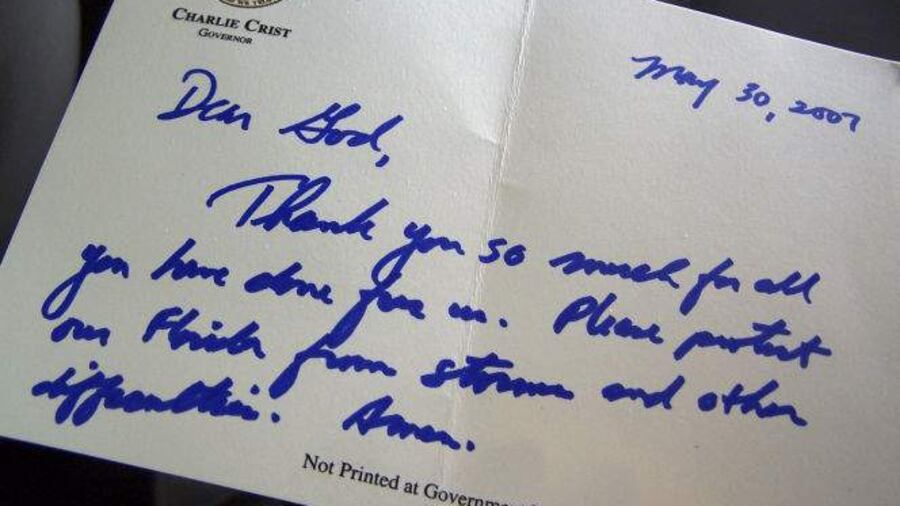 CHARLIE CRIST
GOVERNOR
May 30, 2007
Dear God,
Thank you so much for all
you have done for us. Please protect
our Florida from storms and other
difficulties. Amen.
Not Printed at Government